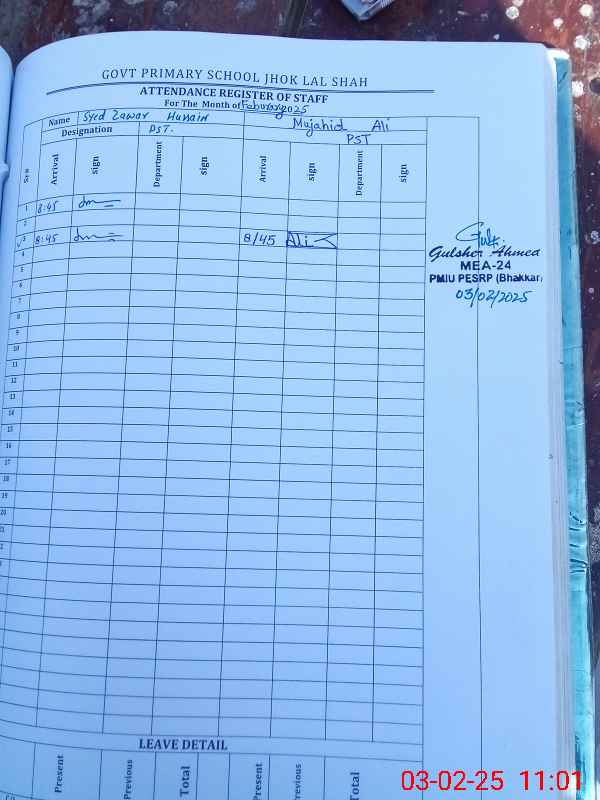 GOVT PRIMARY SCHOOL JHOK LAL SHAH
ATTENDANCE REGISTER OF STAFF
For The Month of Feburary 2025
Name Syed Zawar Hussain Mujahid Ali
Designation PST. PST
Sr # Arrival sign Department sign Arrival sign Department sign
1 8:45
2
3 8:45 8/45 Ali
4
5
6
7
8
9
10
11
12
13
14
15
16
17
18
19
20
21
Gulsher Ahmed
MEA-24
PMIU PESRP (Bhakkar)
03/02/2025
LEAVE DETAIL
Present Previous Total Present Previous Total
03-02-25 11:01